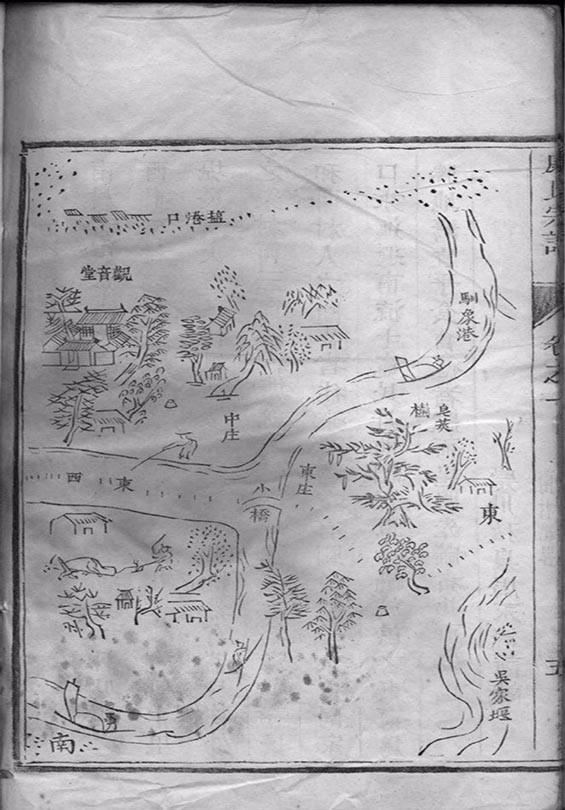 宗譜
卷之一
五
口港趙
堂音觀
馴象港
中庄
皂莢
樹
東庄
西
東
小橋
東
吳家堰
南